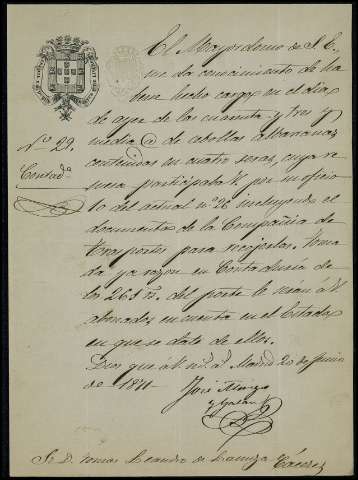 El Mayordomo de S. E.
me da conocimiento de ha
berse hecho cargo en el dia
de ayer de las cuarenta y tres y
Nº. 29.
media @ de cebollas albarranas
contenidas en cuatro seras, cuya re
Contadª
mesa participaba V. por su oficio
10 del actual nº 26 incluyendo el
documento de la Compañia de
trasportes para recojerlas. Toma
da ya razon en Contaduria de
los 265 rs. del porte le serán á V.
abonados en cuenta en el Estado
en que se date de ellos.
Dios gue á V. ms. as. Madrid 20 de Junio
de 1871.
José
y Galan
Sr. D. Tomas Leandro de Cáceres